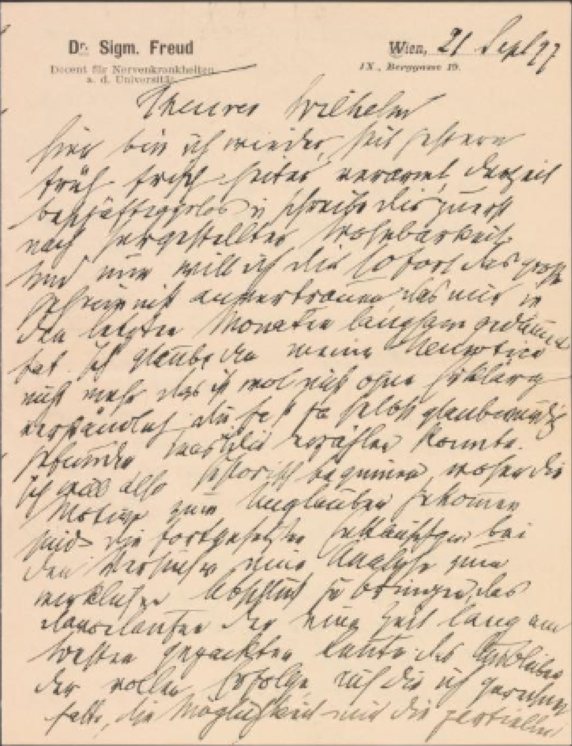 Dr. Sigm. Freud
Docent für Nervenkrankheiten
a. d. Universität.
Wien, 21 Sept 97
IX., Berggasse 19.
Theurer Wilhelm
hier bin ich wieder, seit gestern
früh frisch heiter verarmt, derzeit
beschäftigungslos u schreibe dir zuerst
nach hergestellter Wohnbarkeit.
Und nun will ich dir sofort das große
Geheimniß anvertrauen das mir in
den letzten Monaten langsam gedämmert
hat. Ich glaube an meine Neurotica
nicht mehr das ist wol nicht ohne Erklärung
verständlich du hast ja selbst glaubwürdig
gefunden was ich dir erzählen konnte.
Ich will also historisch beginnen woher die
Motive zum Unglauben gekommen
sind. Die fortgesetzten Enttäuschungen bei
den Versuchen eine Analyse zum
wirklichen Abschluß zu bringen, das
Davonlaufen der eine Zeit lang am
besten gepackten Leute, das Ausbleiben
der vollen Erfolge, auf die ich gerechnet
hatte, die Möglichkeit mir die partiellen